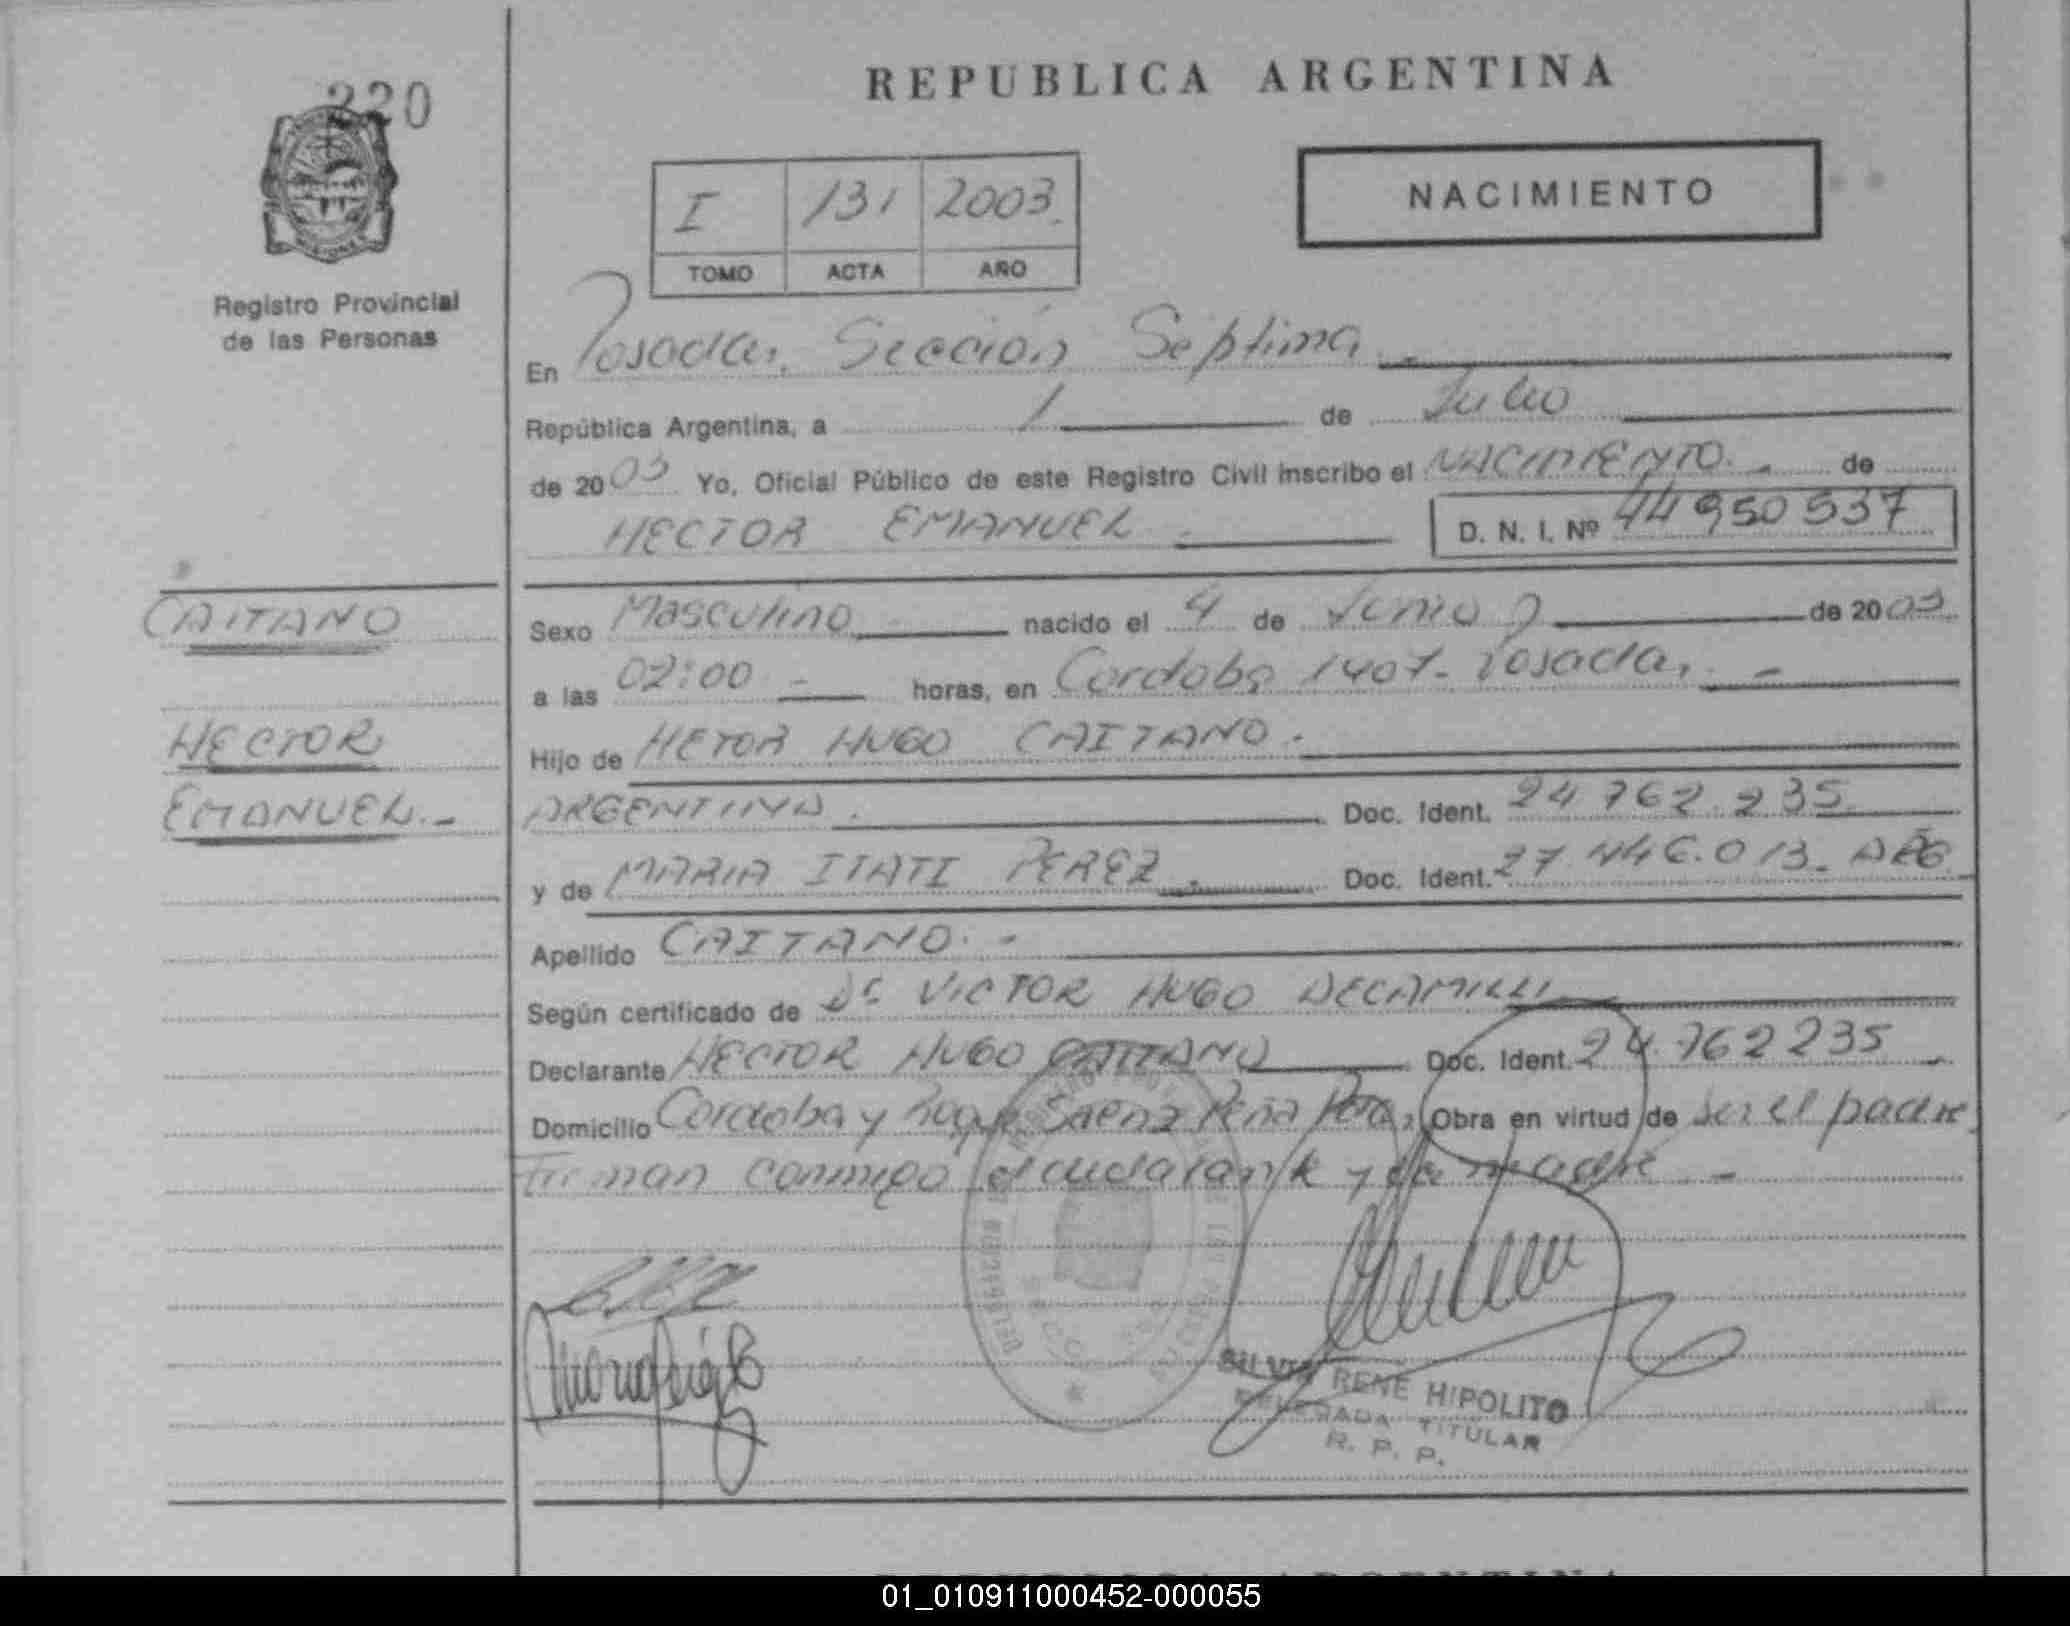 220
REPUBLICA ARGENTINA
NACIMIENTO
I 131 2003.
TOMO ACTA AÑO
Registro Provincial
de las Personas
En Posadas, Sección Septima
República Argentina, a 1 de Julio
de 2003 Yo, Oficial Público de este Registro Civil inscribo el NACIMIENTO.- de
HECTOR EMANUEL - D. N. I. Nº 44 950 537
CAITANO
HECTOR
EMANUEL.-
Sexo Masculino nacido el 4 de Junio de 2003
a las 02:00 - horas, en Cordoba 1407- Posadas.-
Hijo de HETOR HUGO CAITANO.
ARGENTINA. Doc. Ident. 24 762 235
y de MARIA ITATI PEREZ. Doc. Ident. 27 446.013- ARG.
Apellido CAITANO.-
Según certificado de Dr VICTOR HUGO DECAMILLI
Declarante HECTOR HUGO CAITANO Doc. Ident. 24.762235
Domicilio Cordoba y Roque Saenz Peña Pdas, Obra en virtud de ser el padre
Firman conmigo el declarante y la madre -
SILVIA RENE HIPOLITO
DELEGADA TITULAR
R. P. P.
01_010911000452-000055